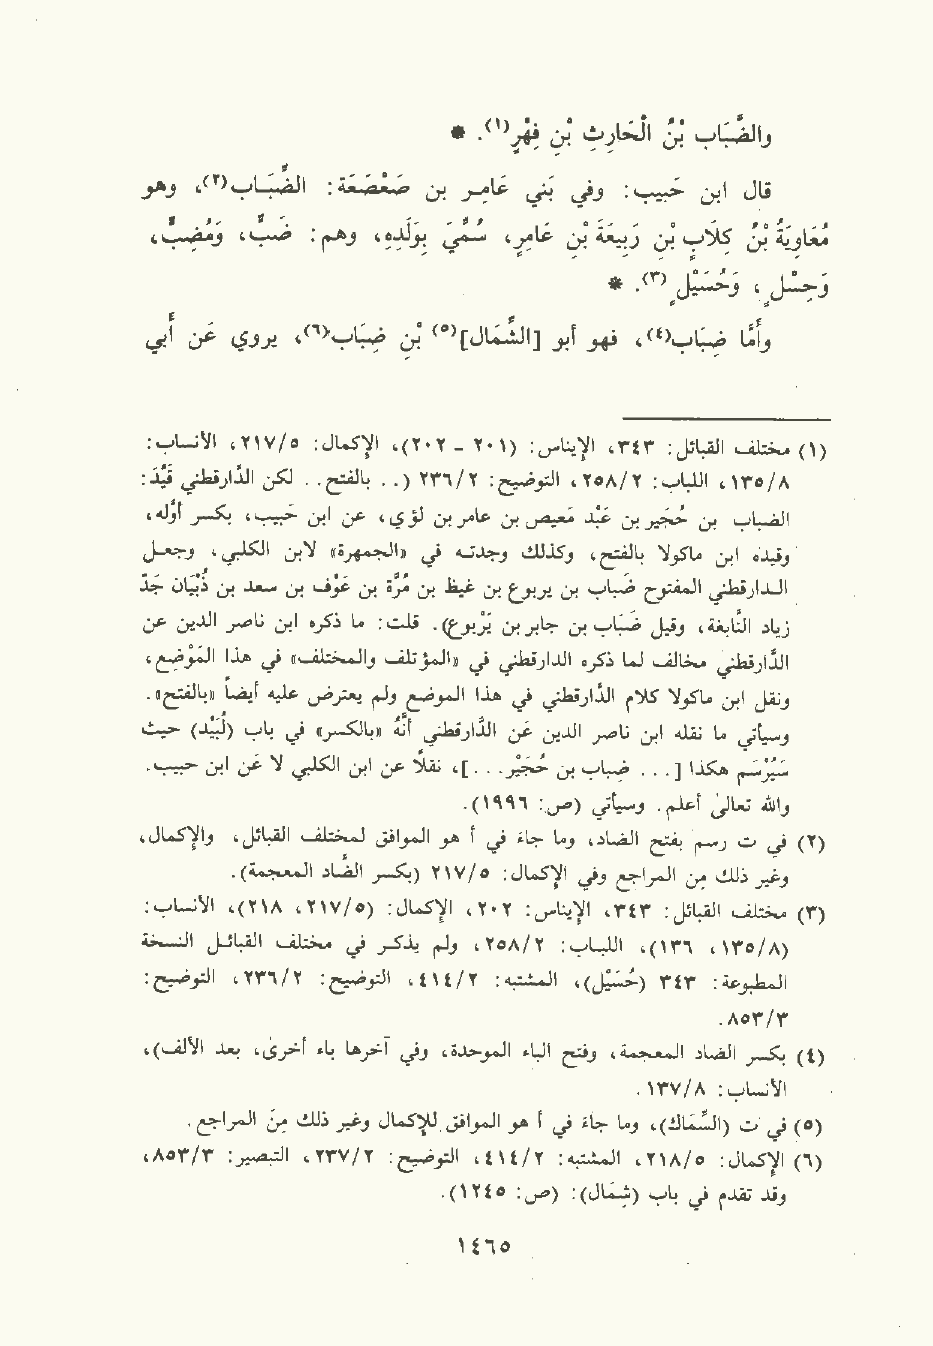 والضَّبَاب بْنُ الْحَارِثِ بْنِ فِهْرٍ(١). *
قال ابن حَبيب: وفي بَنِي عَامِر بن صَعْصَعَة: الضَّبَاب(٢)، وهو
مُعَاوِيَةُ بْنُ كِلَابٍ بْنِ رَبِيعَةَ بْنِ عَامِرٍ، سُمِّيَ بِوَلَدِهِ، وهم: ضَبٌّ، وَمُضِبٌّ،
وَحِسْلٍ، وَحُسَيْلٍ(٣). *
وأَمَّا ضِبَاب(٤)، فهو أبو [الشِّمَال](٥) بْنِ ضِبَاب(٦)، يروي عَن أَبي
(١) مختلف القبائل: ٣٤٣، الإيناس: (٢٠١ - ٢٠٢)، الإكمال: ٢١٧/٥، الأنساب:
١٣٥/٨، اللباب: ٢٥٨/٢، التوضيح: ٢٣٦/٢ (.. بالفتح.. لكن الدَّارقطني قَيَّدَ:
الضباب بن حُجَير بن عَبْد مَعيص بن عامر بن لؤي، عن ابن حَبيب، بكسر أوله،
وقيده ابن ماكولا بالفتح، وكذلك وجدته في «الجمهرة» لابن الكلبي، وجعل
الدارقطني المفتوح ضَباب بن يربوع بن غيظ بن مُرَّة بن عَوْف بن سعد بن ذُبْيَان جَدّ
زياد النَّابغة، وقيل ضَبَاب بن جابر بن يَرْبوع). قلت: ما ذكره ابن ناصر الدين عن
الدَّارقطني مخالف لما ذكره الدارقطني في «المؤتلف والمختلف» في هذا المَوْضِع،
ونقل ابن ماكولا كلام الدَّارقطني في هذا الموضع ولم يعترض عليه أيضاً «بالفتح».
وسيأتي ما نقله ابن ناصر الدين عَن الدَّارقطني أَنَّهُ «بالكسر» في باب (لَبَيْد) حيث
سَيُرْسَم هكذا [... ضباب بن حُجَيْر...]، نقلاً عن ابن الكلبي لا عَن ابن حبيب.
والله تعالىٰ أعلم. وسيأتي (ص: ١٩٩٦).
(٢) في ت رسم بفتح الضاد، وما جاء في أ هو الموافق لمختلف القبائل، والإكمال،
وغير ذلك مِن المراجع وفي الإكمال: ٢١٧/٥ (بكسر الضَّاد المعجمة).
(٣) مختلف القبائل: ٣٤٣، الإيناس: ٢٠٢، الإكمال: (٢١٧/٥، ٢١٨)، الأنساب:
(١٣٥/٨، ١٣٦)، اللباب: ٢٥٨/٢، ولم يذكر في مختلف القبائل النسخة
المطبوعة: ٣٤٣ (حُسَيْل)، المشتبه: ٤١٤/٢، التوضيح: ٢٣٦/٢، التوضيح:
٨٥٣/٣.
(٤) بكسر الضاد المعجمة، وفتح الباء الموحدة، وفي آخرها باء أخرى، بعد الألف)،
الأنساب: ١٣٧/٨.
(٥) في ت (السِّمَاك)، وما جاء في أ هو الموافق للإكمال وغير ذلك مِنَ المراجع.
(٦) الإكمال: ٢١٨/٥، المشتبه: ٤١٤/٢، التوضيح: ٢٣٧/٢، التبصير: ٨٥٣/٣،
وقد تقدم في باب (شِمَال): (ص: ١٢٤٥).
١٤٦٥